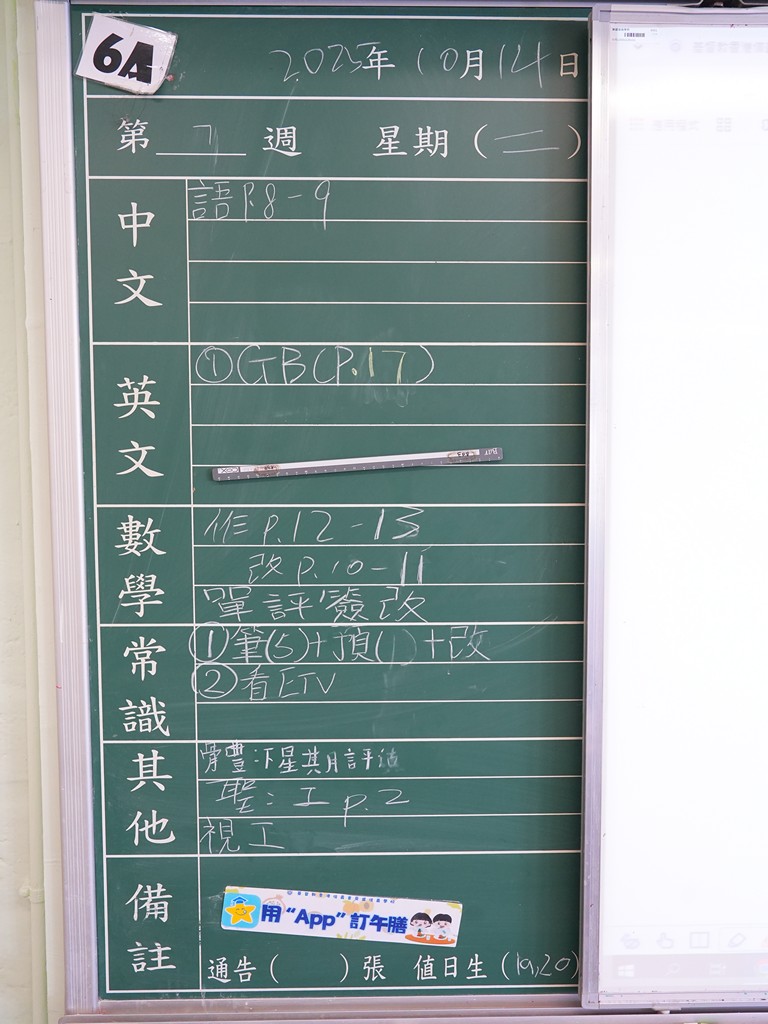 6A
2025年10月14日
第 7 週 星期(二)
中文
語P.8-9
英文
①GB(P.17)
數學
作P.12-13
改P.10-11
單評簽改
常識
①筆(5)+預(1)+改
②看ETV
其他
體:下星期評估
聖:工p.2
視工
備註
用“App”訂午膳
通告( )張 值日生(19,20)